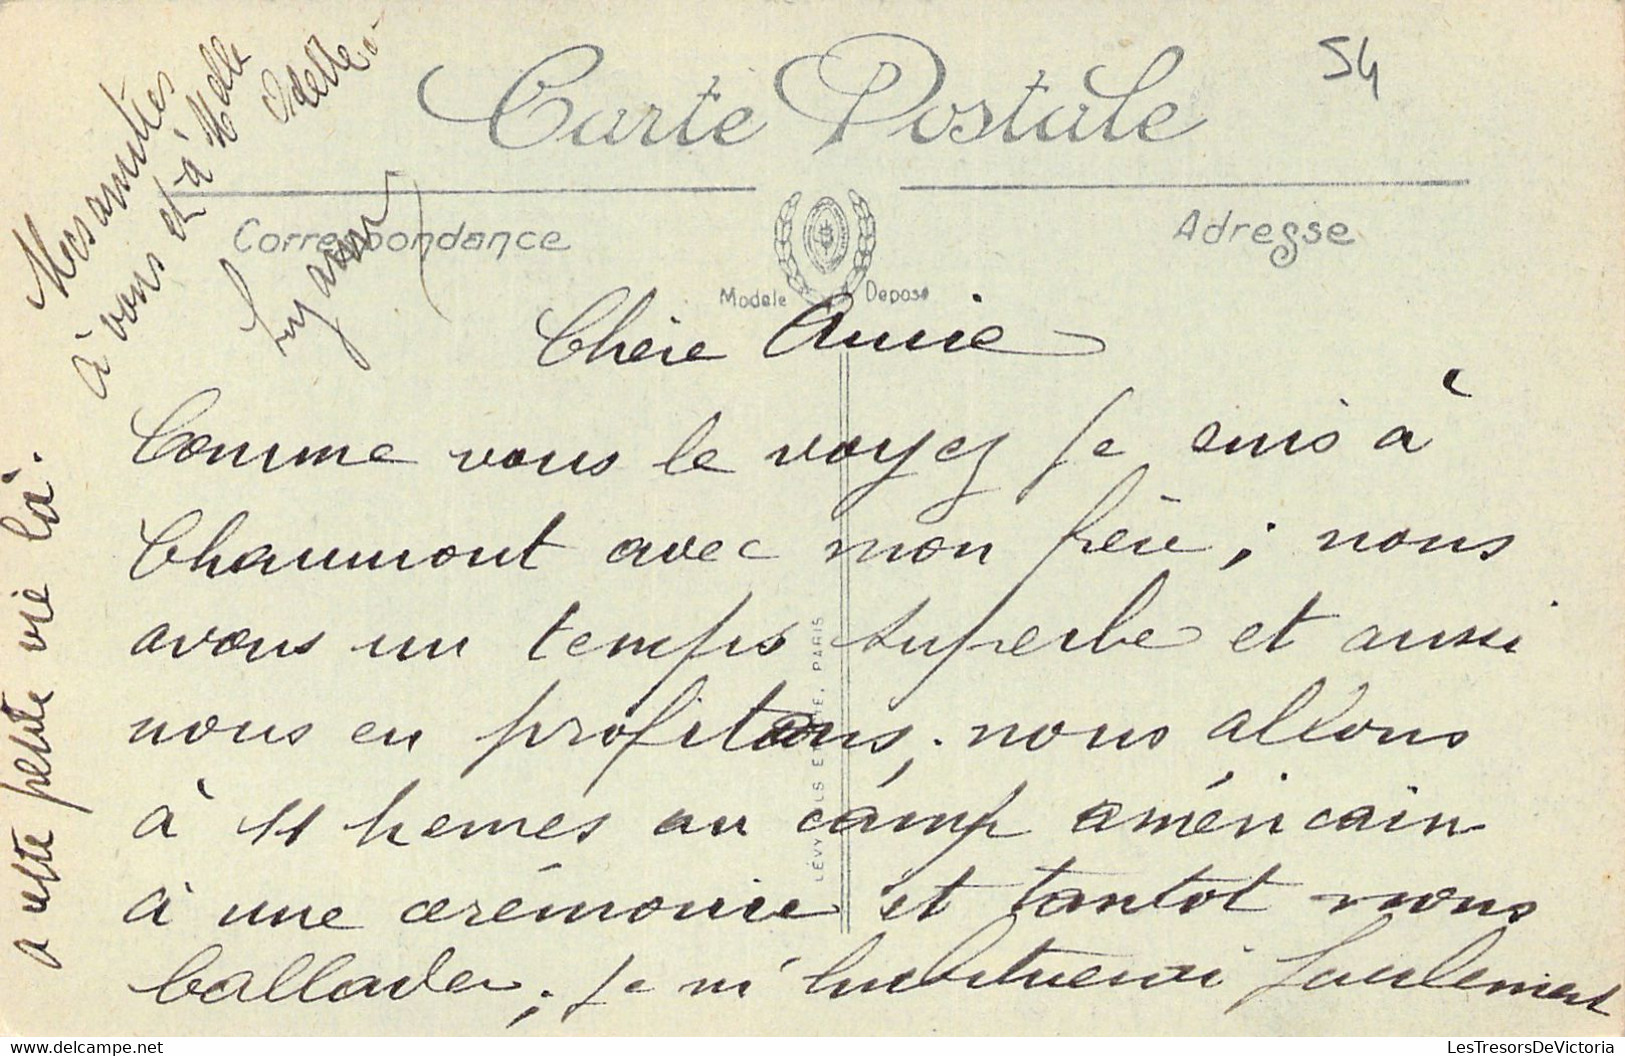 54
Carte Postale
Correspondance
Adresse
Modele Deposé
LÉVY FILS ET CIE, PARIS
Chère Annie
Comme vous le voyez je suis à
Chaumont avec mon frère ; nous
avons un temps superbe et aussi
nous en profitons, nous allons
à 11 heures au camp américain
à une cérémonie et tantot nous
ballader ; je m'habituerai facilement
a cette petite vie là.
Mes amitiés
à vous et à Melle
Odette